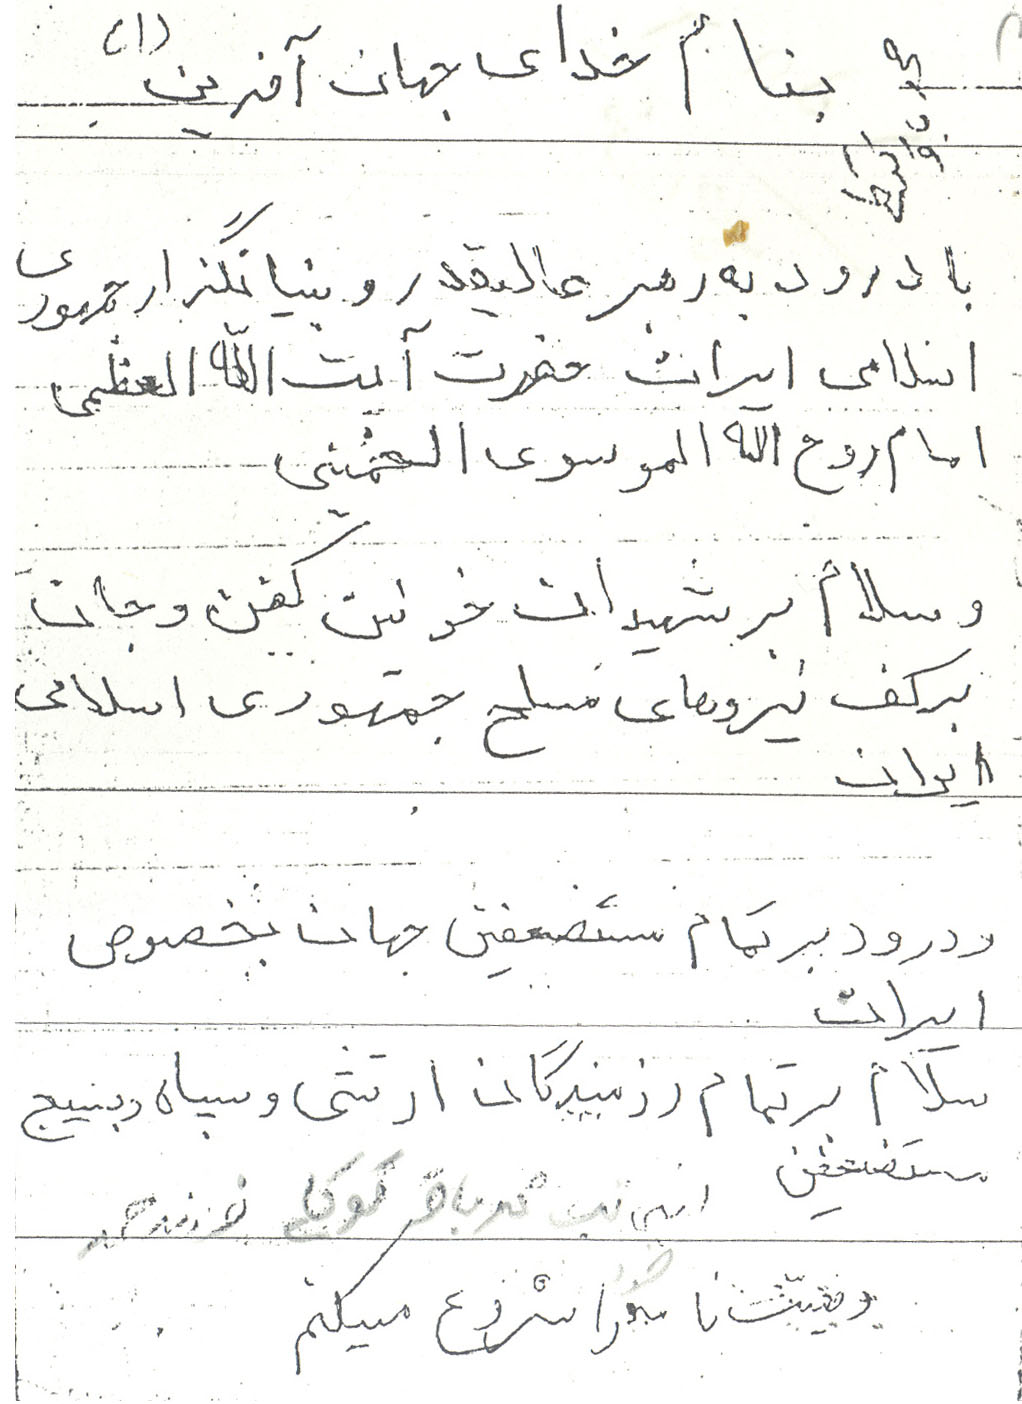 بنام خدای جهان آفرین (۱)
با درود به رهبر عالیقدر و بنیانگزار جمهوری
اسلامی ایران حضرت آیت الله العظمی
امام روح الله الموسوی الخمینی
و سلام بر شهیدان خونین کفن و جان
برکف نیروهای مسلح جمهوری اسلامی
ایران
و درود بر تمام مستضعفین جهان بخصوص
ایران
سلام بر تمام رزمندگان ارتشی و سپاه و بسیج
مستضعفین
اینجانب محمد باقر کوکلی فرزند
وصیت نامه را شروع میکنم